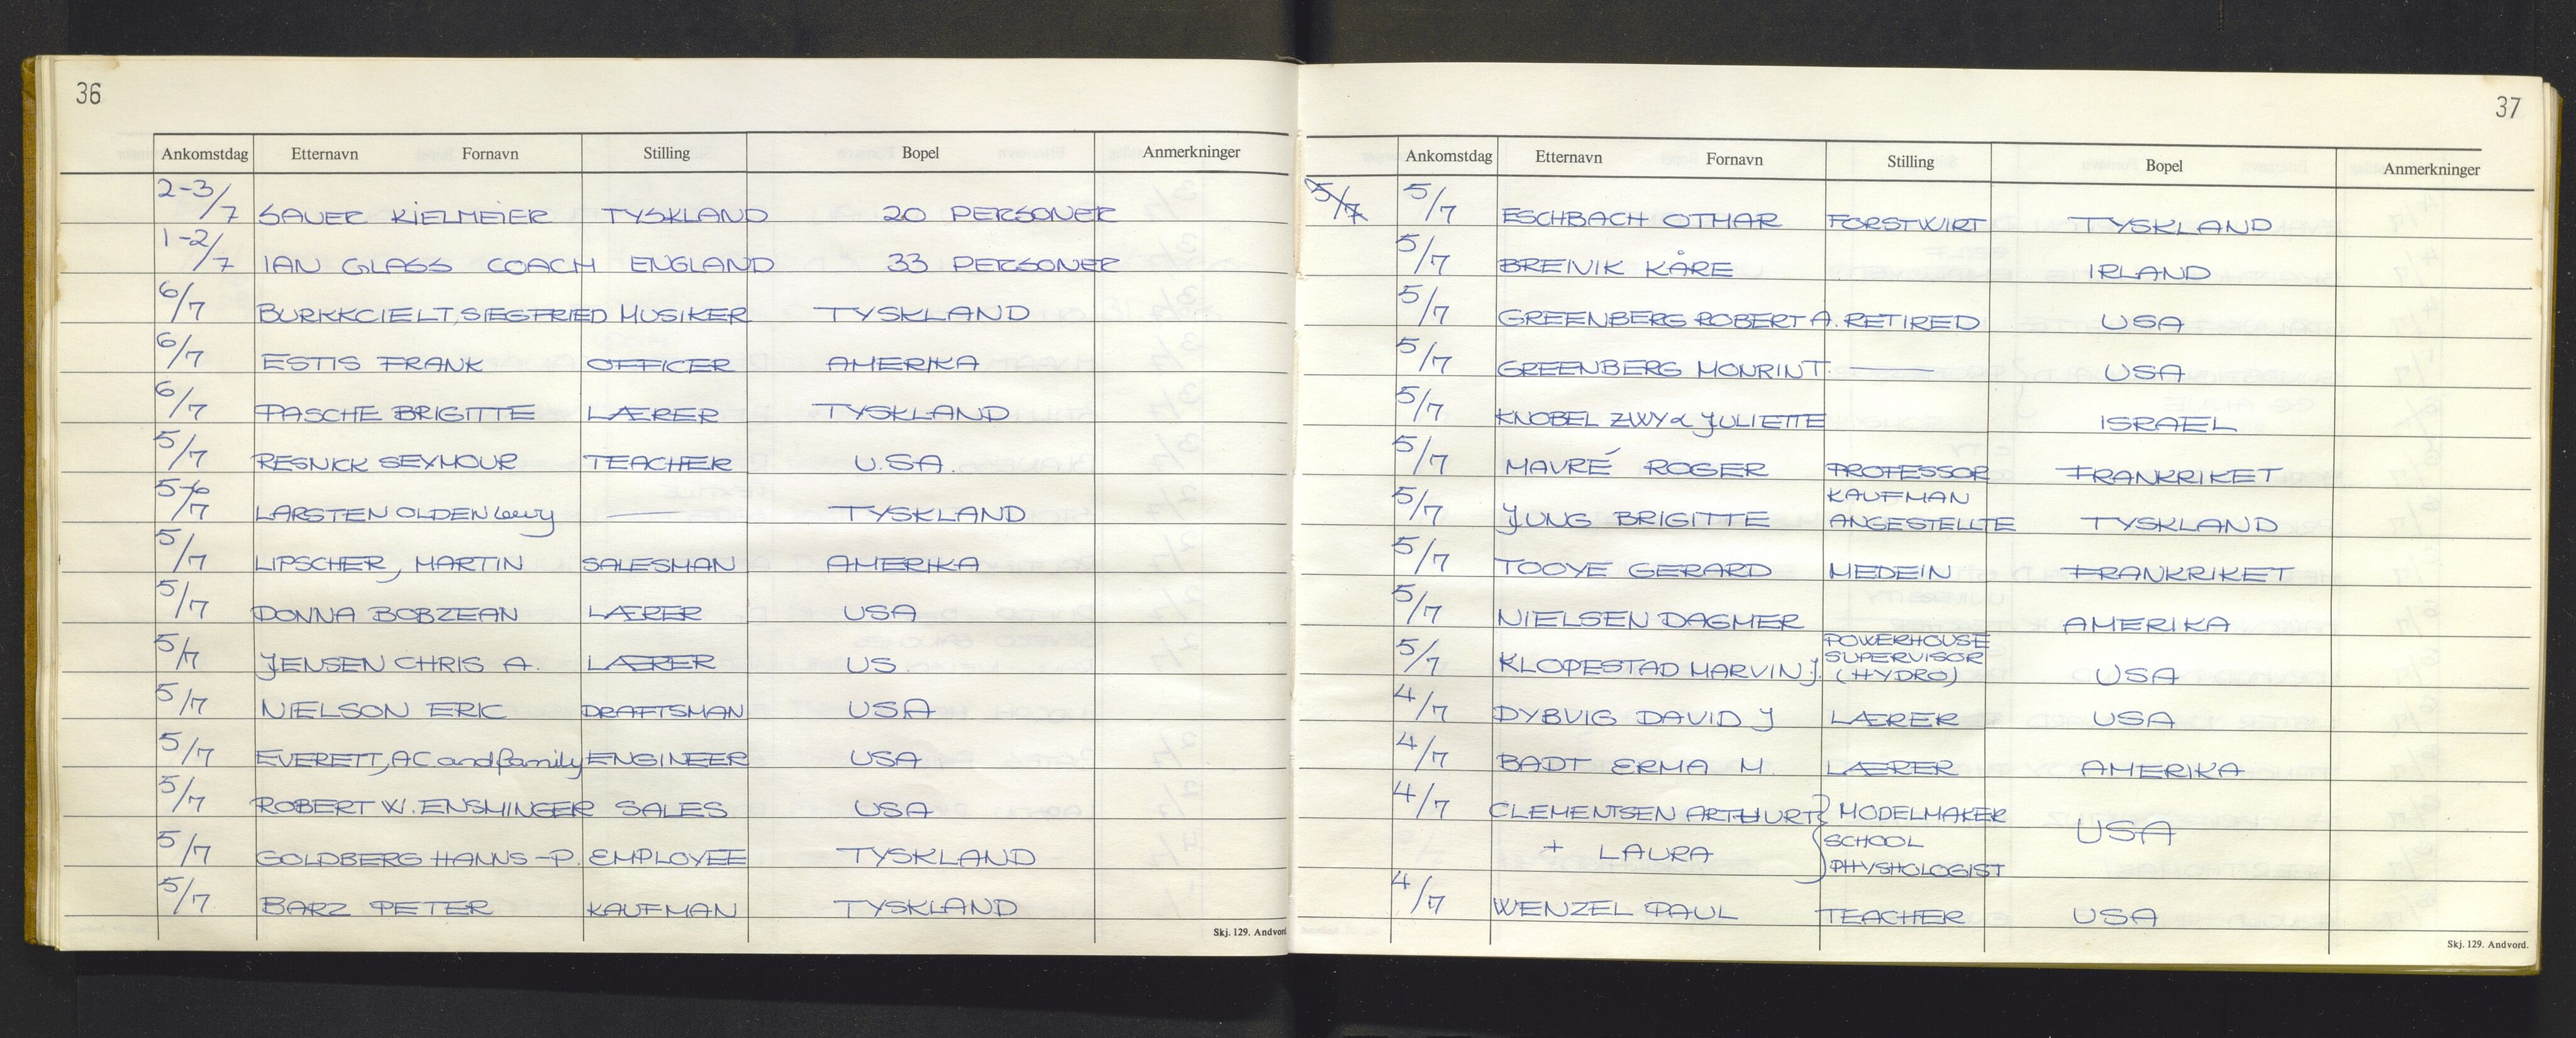 36
Ankomstdag Etternavn Fornavn Stilling Bopel Anmerkninger
2-3/7 SAUER KIELMEIER TYSKLAND 20 PERSONER
1-2/7 IAN GLASS COACH ENGLAND 33 PERSONER
6/7 BURKKCIELT, SIEGFRIED MUSIKER TYSKLAND
6/7 ESTIS FRANK OFFICER AMERIKA
6/7 PASCHE BRIGITTE LÆRER TYSKLAND
5/7 RESNICK SEYMOUR TEACHER U.S.A.
5-6/7 LARSTEN OLDEN —— TYSKLAND
5/7 LIPSCHER, MARTIN SALESMAN AMERIKA
5/7 DONNA BOBZEAN LÆRER USA
5/7 JENSEN CHRIS A. LÆRER US.
5/7 NIELSON ERIC DRAFTSMAN USA
5/7 EVERETT, AC and family ENGINEER USA
5/7 ROBERT W. ENSMINGER SALES USA
5/7 GOLDBERG HANNS-P. EMPLOYEE TYSKLAND
5/7 BARZ PETER KAUFMAN TYSKLAND
Skj. 129. Andvord
37
Ankomstdag Etternavn Fornavn Stilling Bopel Anmerkninger
5/7 5/7 ESCHBACH OTHAR FORSTWIRT TYSKLAND
5/7 BREIVIK KÅRE IRLAND
5/7 GREENBERG ROBERT A. RETIRED USA
5/7 GREENBERG MONRINT. —— USA
5/7 KNOBEL ZWY & JULIETTE ISRAEL
5/7 MAVRÉ ROGER PROFESSOR FRANKRIKET
KAUFMAN
5/7 JUNG BRIGITTE ANGESTELLTE TYSKLAND
5/7 TOOYE GERARD MEDEIN FRANKRIKET
5/7 NIELSEN DAGMER AMERIKA
POWERHOUSE
SUPERVISOR
5/7 KLOPESTAD MARVIN J. (HYDRO) USA
4/7 DYBVIG DAVID J LÆRER USA
4/7 BADT ERMA M. LÆRER AMERIKA
4/7 CLEMENTSEN ARTHURT MODELMAKER USA
SCHOOL
+ LAURA PHYSHOLOGIST
4/7 WENZEL PAUL TEACHER USA
Skj. 129. Andvord.